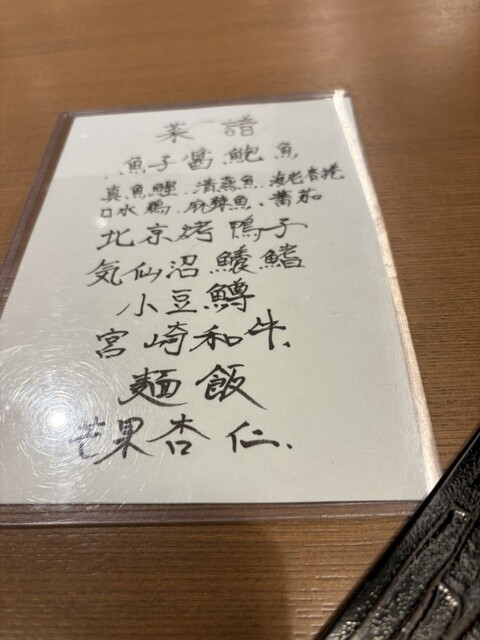 菜譜
魚子醤鮑魚
真魚鰹、清蒸魚、海老香港
口水鶏、麻辣魚、蕃茄
北京烤鴨子
気仙沼鱶鰭
小豆鱒
宮崎和牛、
麺飯
芒果杏仁、